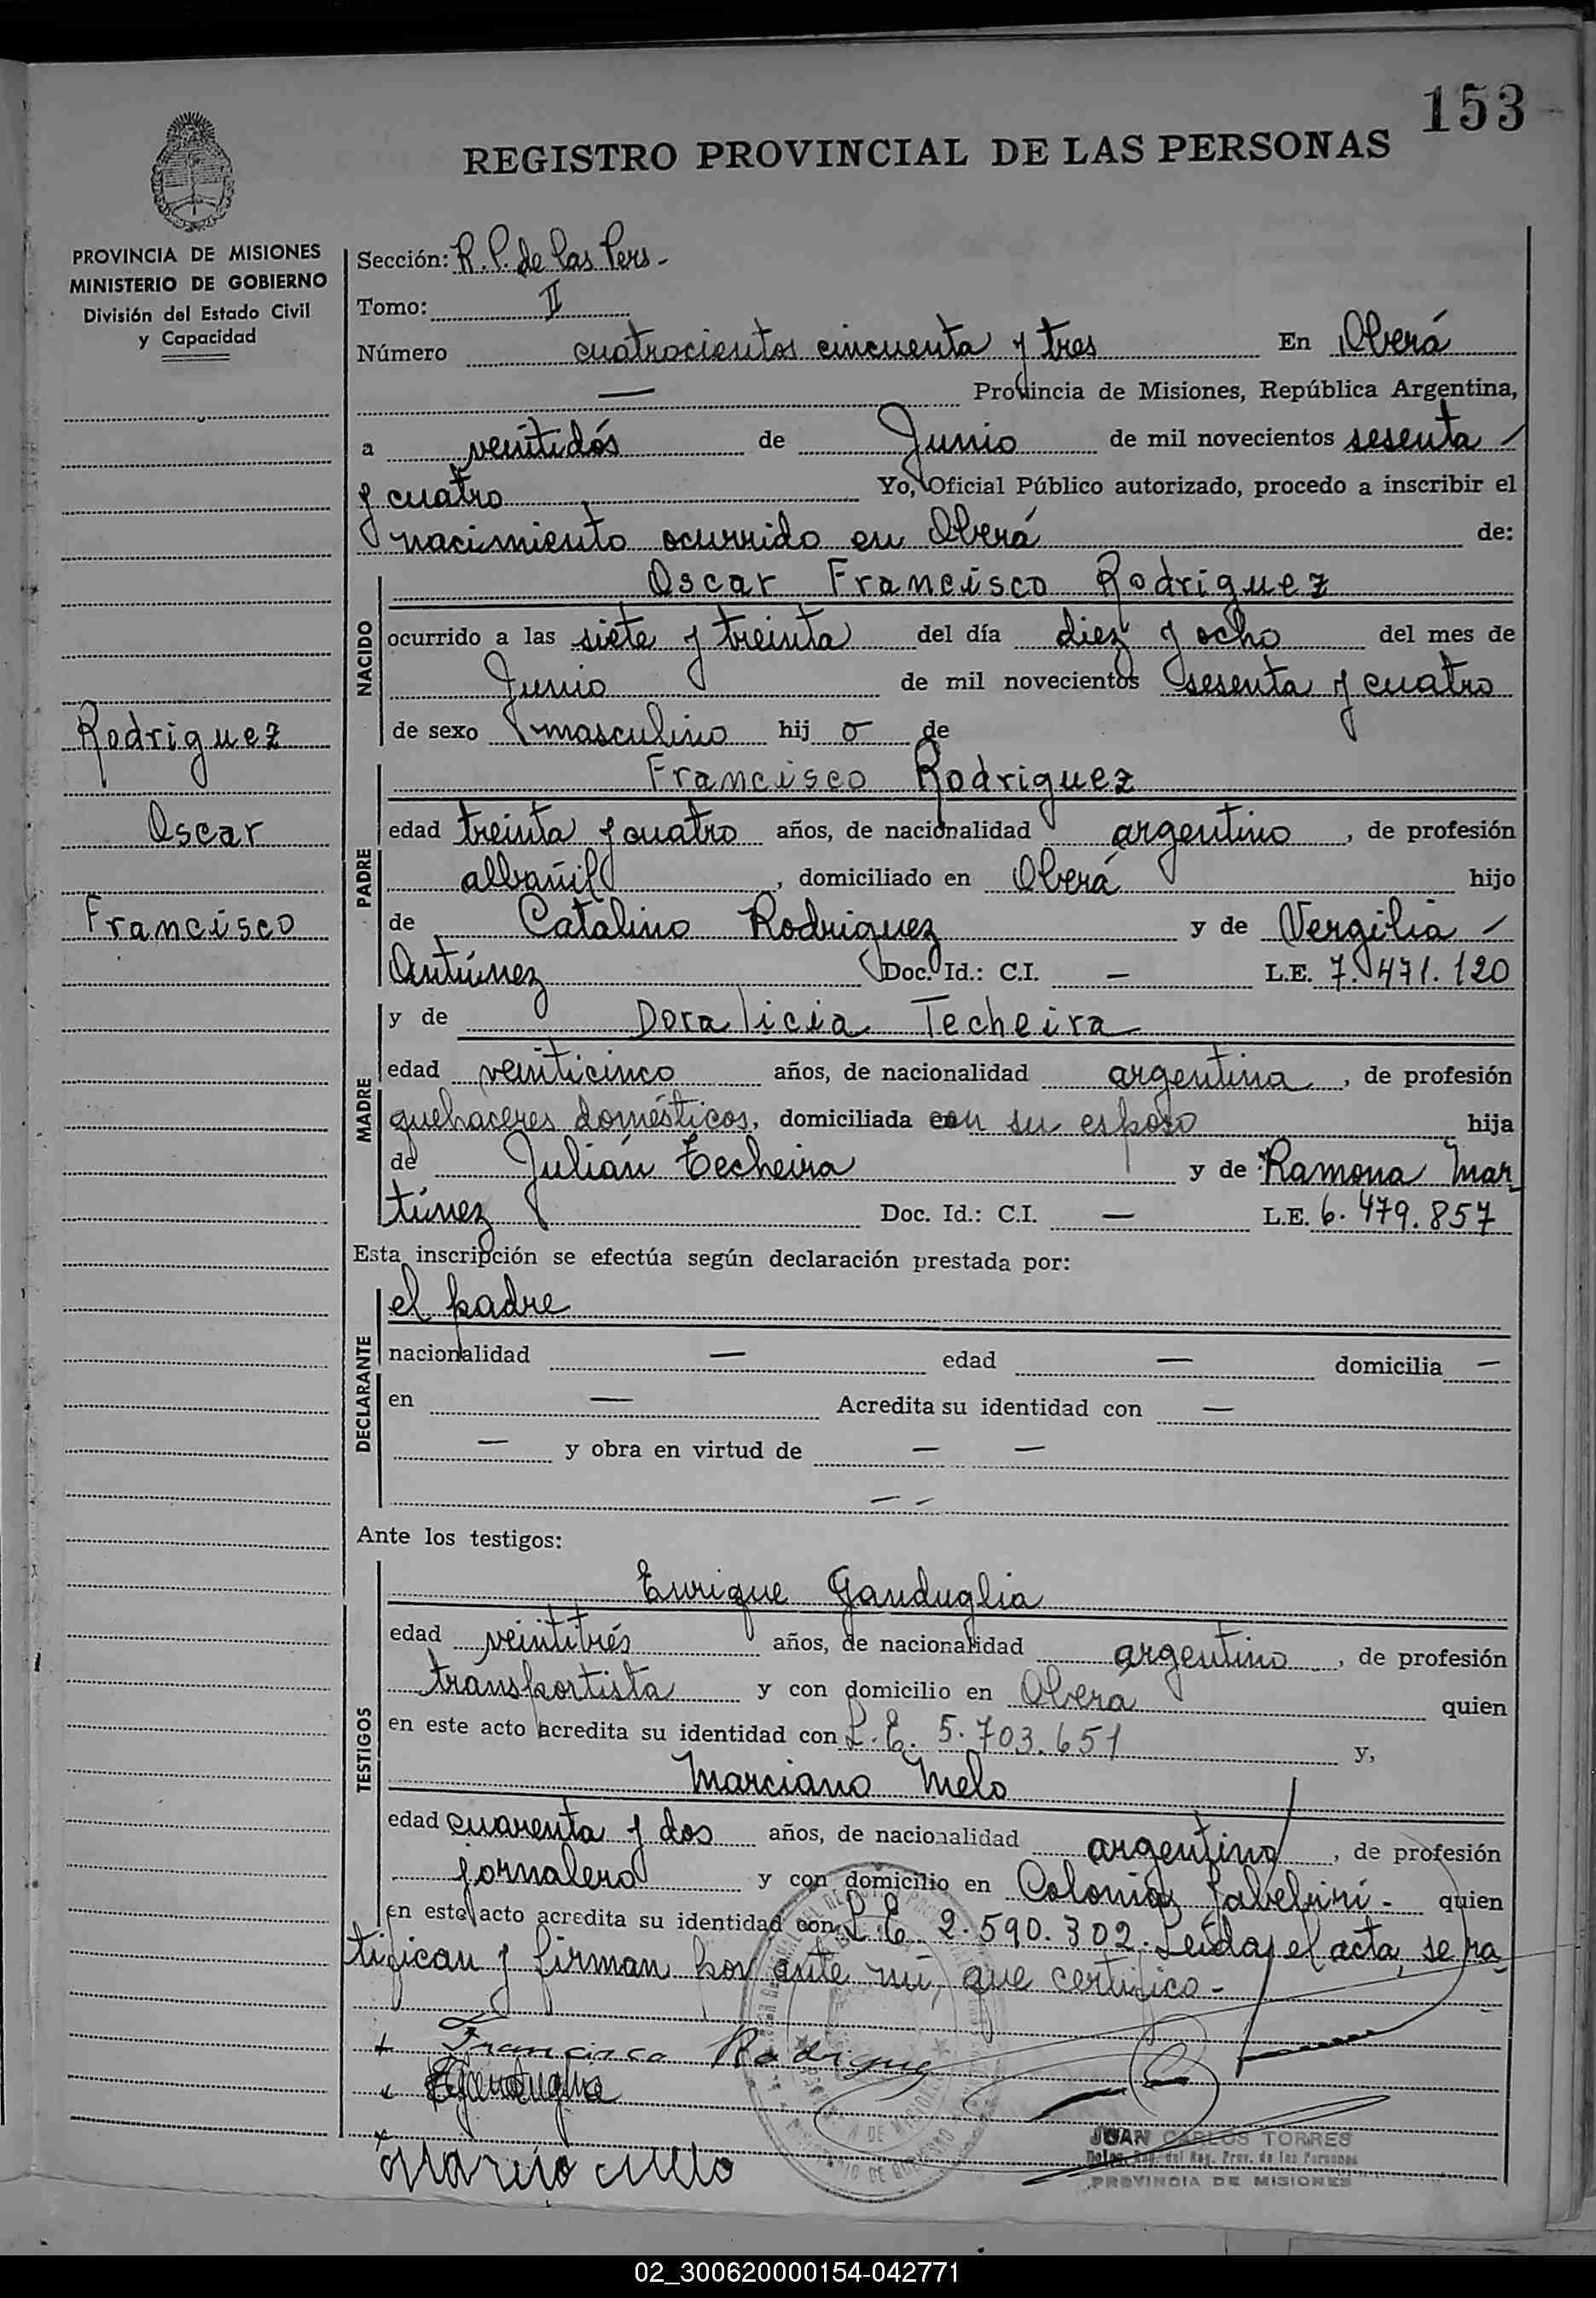 153
REGISTRO PROVINCIAL DE LAS PERSONAS
PROVINCIA DE MISIONES
MINISTERIO DE GOBIERNO
División del Estado Civil
y Capacidad
Rodriguez
Oscar
Francisco
Sección: R.P. de las Pers.-
Tomo: II
Número cuatrocientos cincuenta y tres En Oberá
— Provincia de Misiones, República Argentina,
a veintidós de Junio de mil novecientos sesenta
y cuatro Yo, Oficial Público autorizado, procedo a inscribir el
nacimiento ocurrido en Oberá de:
NACIDO
Oscar Francisco Rodriguez
ocurrido a las siete y treinta del día diez y ocho del mes de
Junio de mil novecientos sesenta y cuatro
de sexo masculino hij o de
PADRE
Francisco Rodriguez
edad treinta y cuatro años, de nacionalidad argentino, de profesión
albañil, domiciliado en Oberá hijo
de Catalino Rodriguez y de Vergilia
Antúnez Doc. Id.: C.I. — L.E. 7.471.120
MADRE
y de Doralicia Techeira
edad veinticinco años, de nacionalidad argentina, de profesión
quehaceres domésticos, domiciliada con su esposo hija
de Julián Techeira y de Ramona Mar
túnez Doc. Id.: C.I. — L.E. 6.479.857
Esta inscripción se efectúa según declaración prestada por:
DECLARANTE
el padre
nacionalidad — edad — domicilia —
en — Acredita su identidad con —
— y obra en virtud de — —
— —
Ante los testigos:
TESTIGOS
Enrique Ganduglia
edad veintitrés años, de nacionalidad argentino, de profesión
transportista y con domicilio en Obera quien
en este acto acredita su identidad con L.E. 5.703.651 y,
Marciano Melo
edad cuarenta y dos años, de nacionalidad argentino, de profesión
jornalero y con domicilio en Colonia Yabebirí.- quien
en este acto acredita su identidad con L.E. 2.590.302. Leída el acta, se ra-
tifican y firman por ante mí, que certifico.-
Francisco Rodriguez
JUAN CARLOS TORRES
PROVINCIA DE MISIONES
02_300620000154-042771